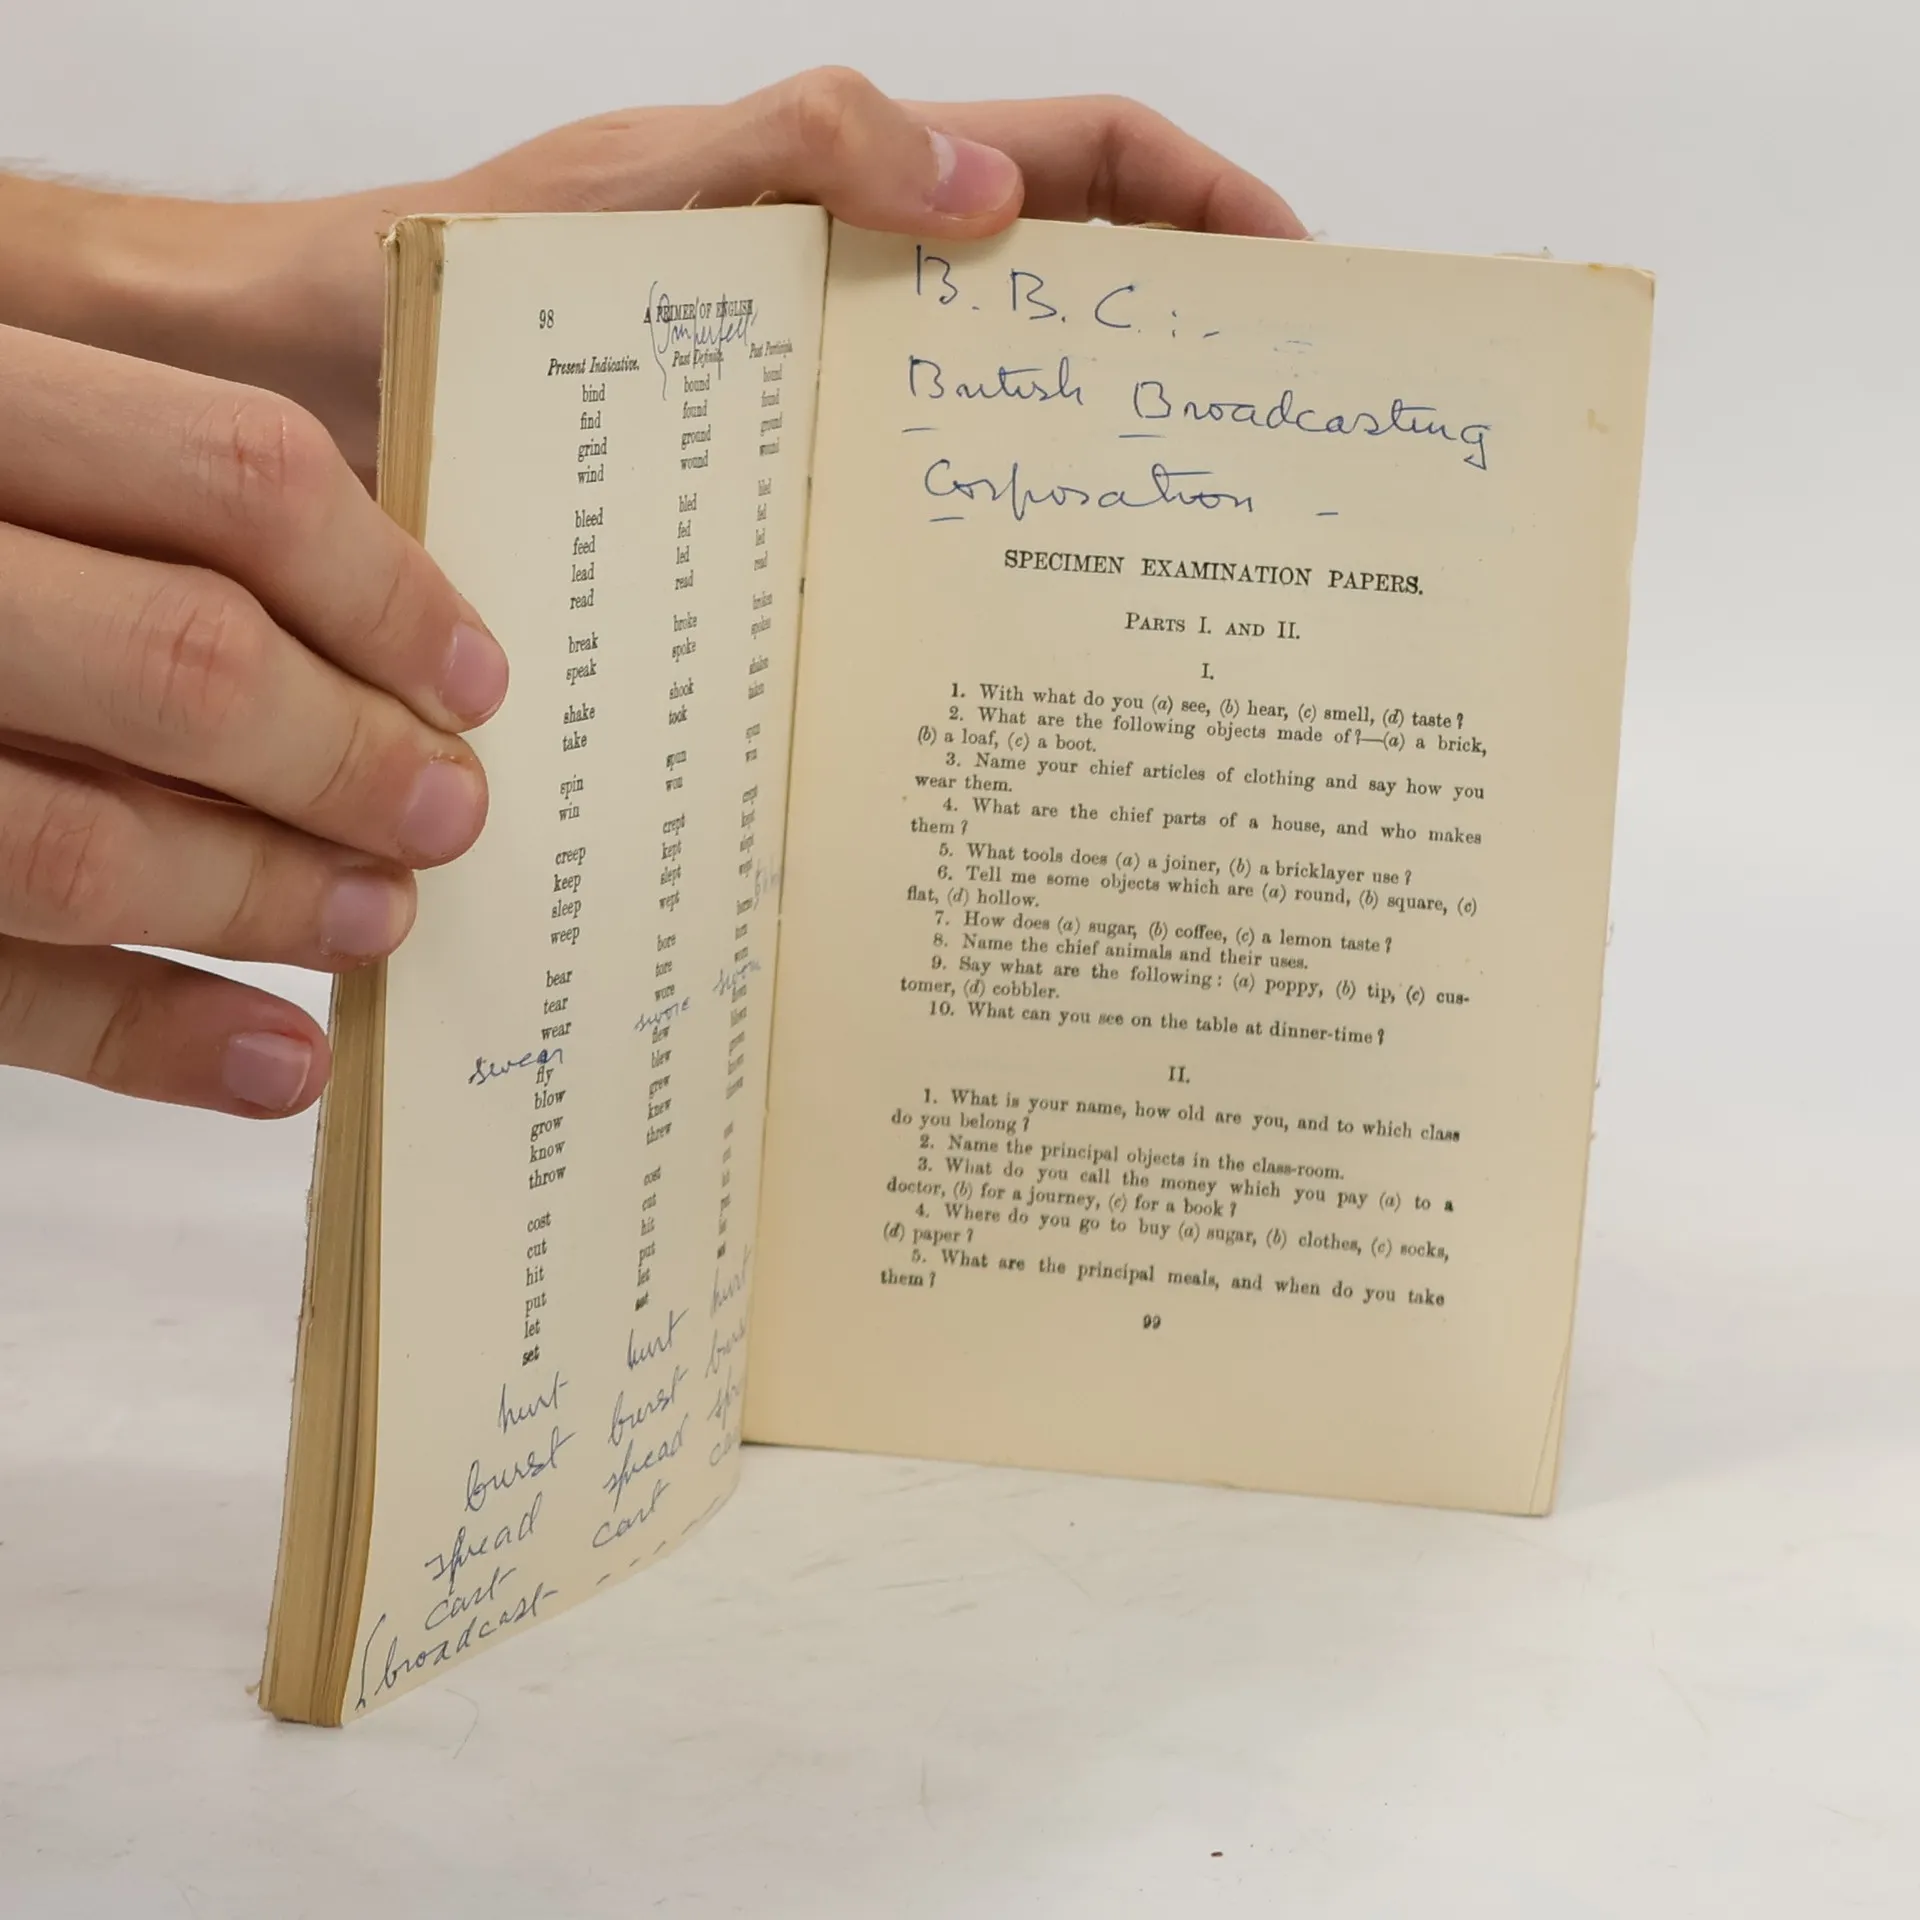 98 A PRIMER OF ENGLISH
(Imperfect)
Present Indicative. Past Definite. Past Participle.
bind bound bound
find found found
grind ground ground
wind wound wound
bleed bled bled
feed fed fed
lead led led
read read read
break broke broken
speak spoke spoken
shake shook shaken
take took taken
spin spun spun
win won won
creep crept crept
keep kept kept
sleep slept slept
weep wept wept
bear bore borne
tear tore torn
wear wore worn
swear swore sworn
fly flew flown
blow blew blown
grow grew grown
know knew known
throw threw thrown
cost cost cost
cut cut cut
hit hit hit
put put put
let let let
set set set
hurt hurt hurt
burst burst
spread spread
cast cast
broadcast - - - -
B. B. C. : -
British Broadcasting
Corporation -
SPECIMEN EXAMINATION PAPERS.
PARTS I. AND II.
I.
1. With what do you (a) see, (b) hear, (c) smell, (d) taste?
2. What are the following objects made of?—(a) a brick,
(b) a loaf, (c) a boot.
3. Name your chief articles of clothing and say how you
wear them.
4. What are the chief parts of a house, and who makes
them?
5. What tools does (a) a joiner, (b) a bricklayer use?
6. Tell me some objects which are (a) round, (b) square, (c)
flat, (d) hollow.
7. How does (a) sugar, (b) coffee, (c) a lemon taste?
8. Name the chief animals and their uses.
9. Say what are the following: (a) poppy, (b) tip, (c) cus-
tomer, (d) cobbler.
10. What can you see on the table at dinner-time?
II.
1. What is your name, how old are you, and to which class
do you belong?
2. Name the principal objects in the class-room.
3. What do you call the money which you pay (a) to a
doctor, (b) for a journey, (c) for a book?
4. Where do you go to buy (a) sugar, (b) clothes, (c) socks,
(d) paper?
5. What are the principal meals, and when do you take
them?
99